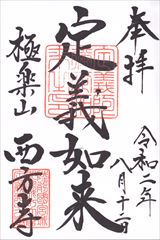 奉拝
令和二年
八月十二日
定義如来
極楽山
西方寺